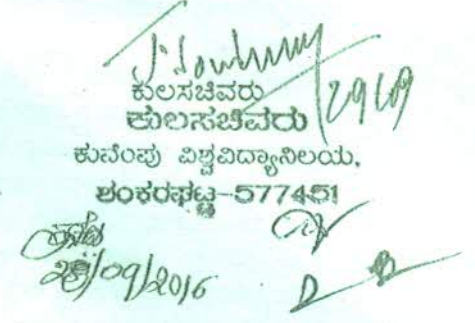 29/09
ಕುಲಸಚಿವರು
ಕುಲಸಚಿವರು
ಕುವೆಂಪು ವಿಶ್ವವಿದ್ಯಾನಿಲಯ,
ಶಂಕರಘಟ್ಟ-577451
28/09/2016